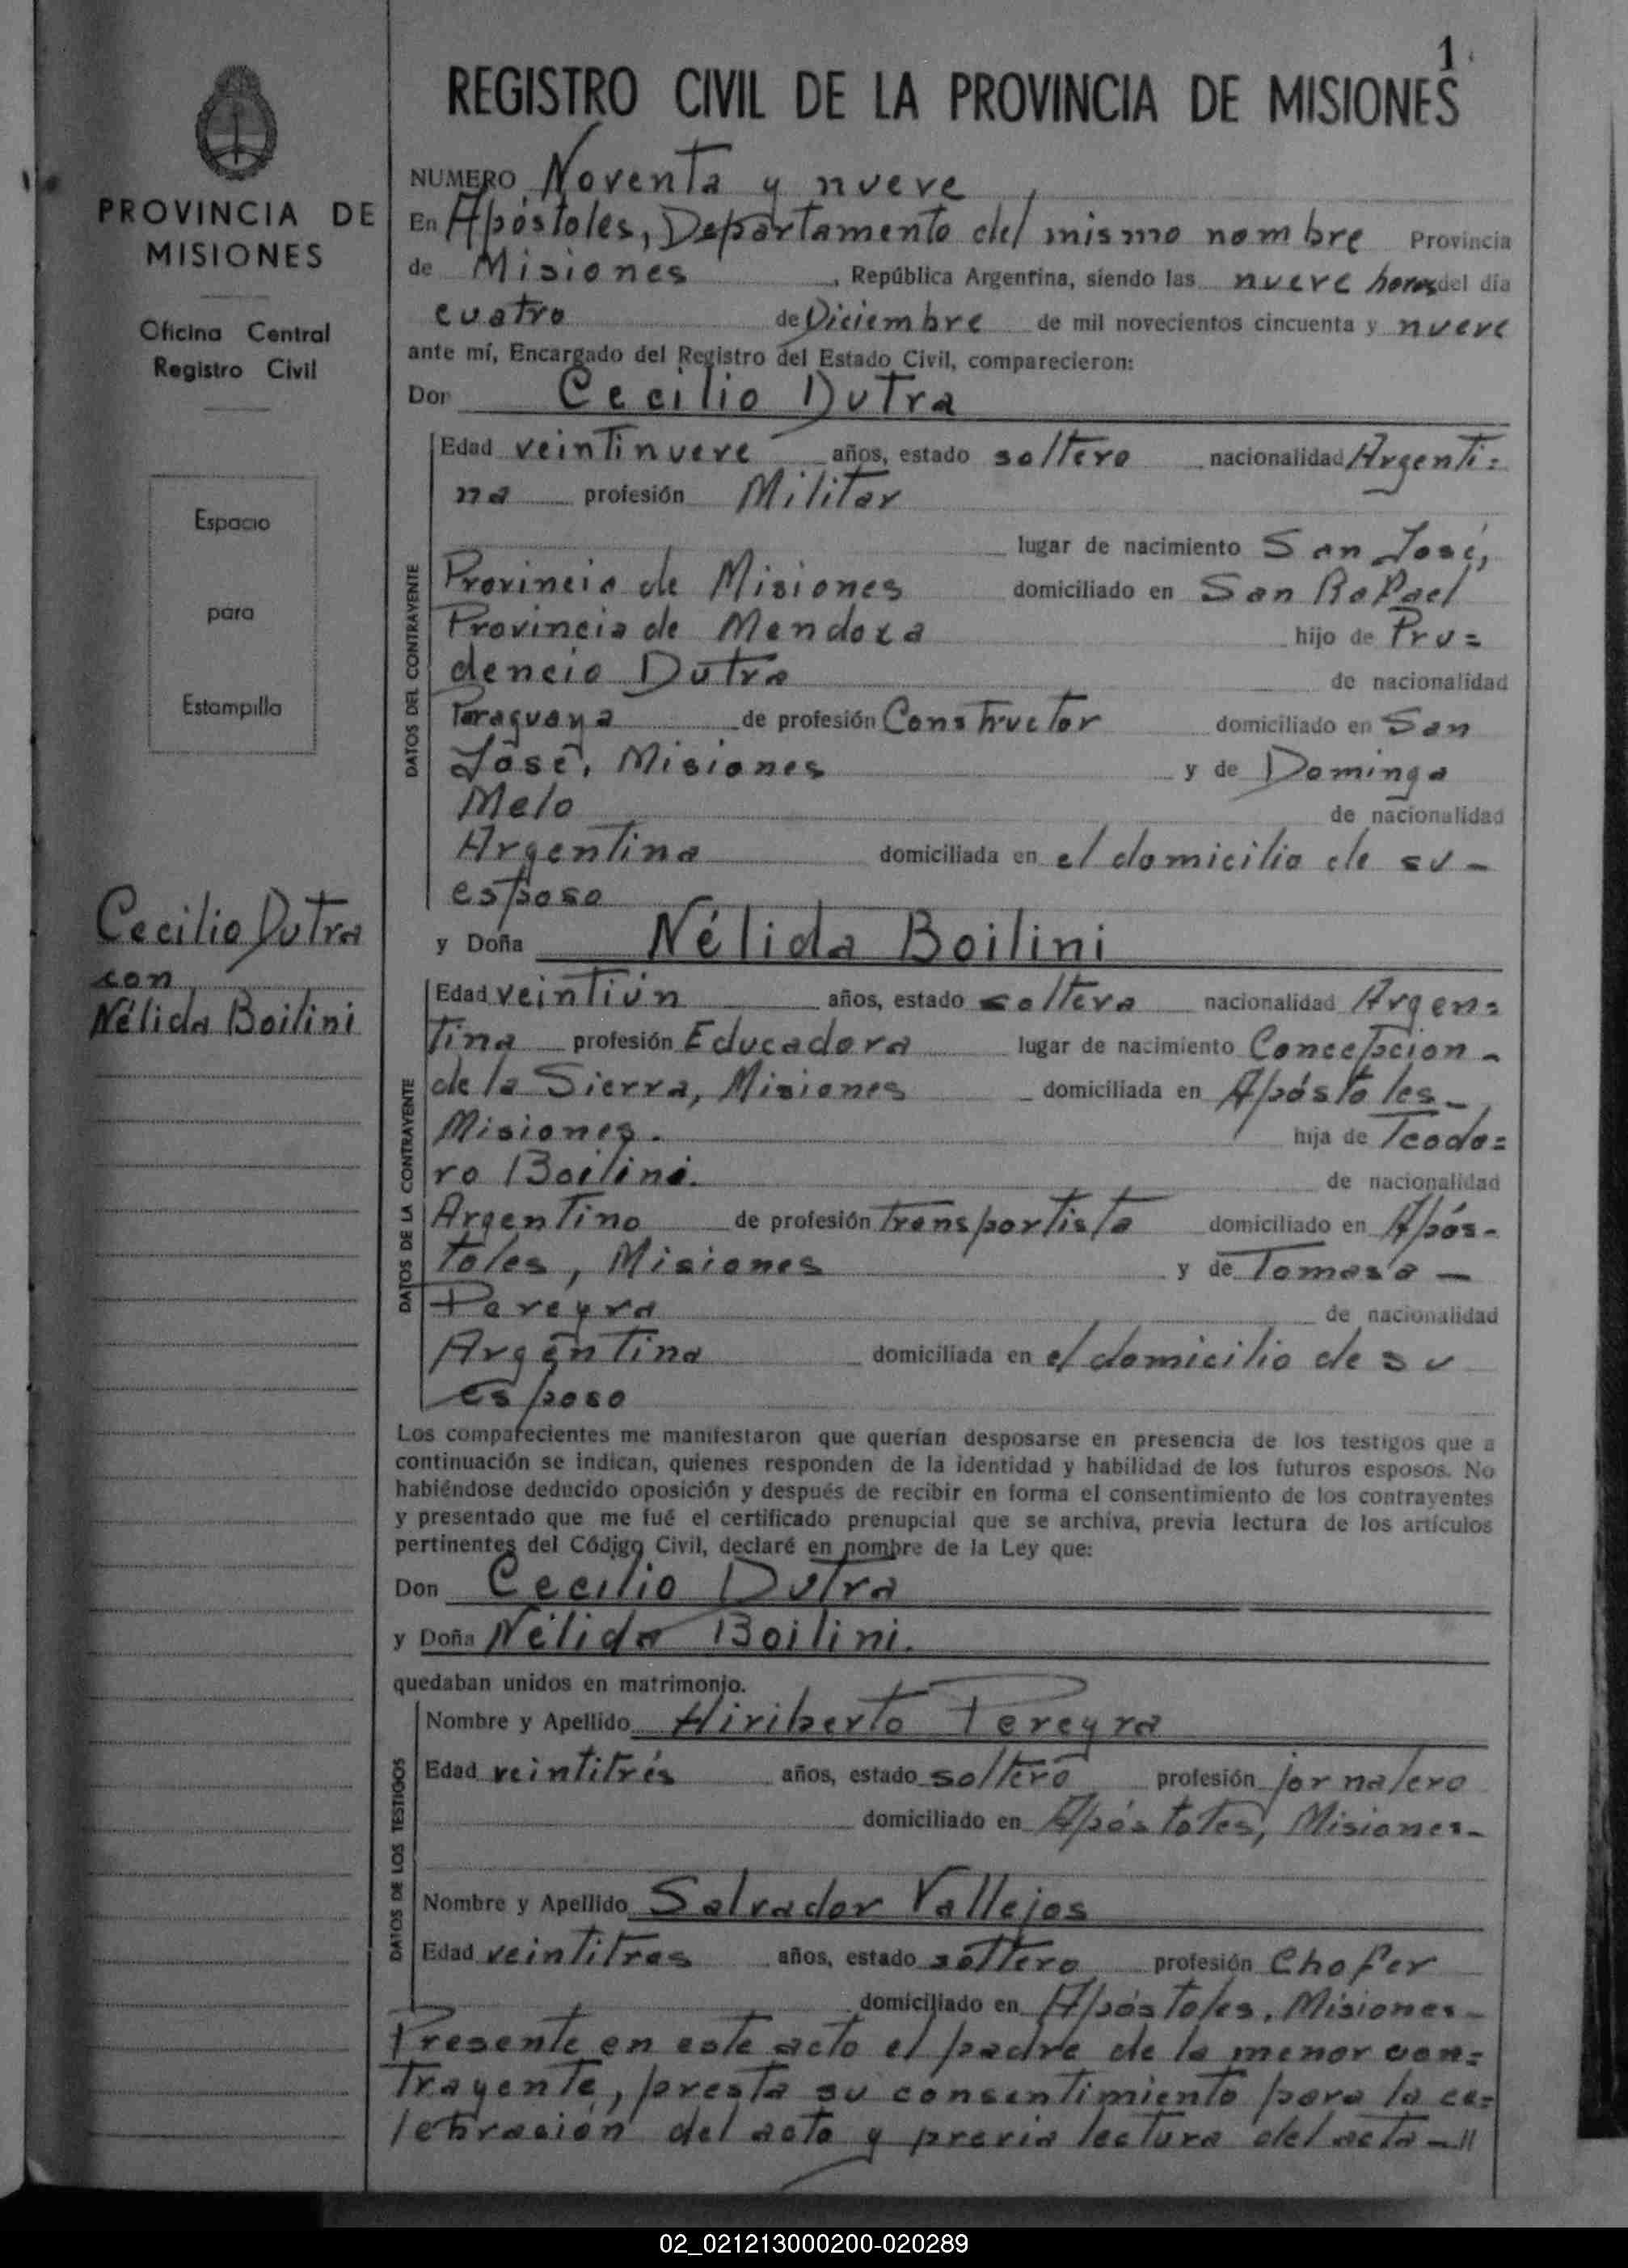 1
REGISTRO CIVIL DE LA PROVINCIA DE MISIONES
PROVINCIA DE
MISIONES
Oficina Central
Registro Civil
Espacio
para
Estampilla
Cecilio Dutra
con
Nélida Boilini
NUMERO Noventa y nueve
En Apóstoles, Departamento del mismo nombre Provincia
de Misiones, República Argentina, siendo las nueve horas del día
cuatro de Diciembre de mil novecientos cincuenta y nueve
ante mí, Encargado del Registro del Estado Civil, comparecieron:
Don Cecilio Dutra
DATOS DEL CONTRAYENTE
Edad veintinueve años, estado soltero nacionalidad Argenti=
na profesión Militar
lugar de nacimiento San José,
Provincia de Misiones domiciliado en San Rafael
Provincia de Mendoza hijo de Pru=
dencio Dutra de nacionalidad
Paraguaya de profesión Constructor domiciliado en San
José, Misiones y de Dominga
Melo de nacionalidad
Argentina domiciliada en el domicilio de su -
esposo
y Doña Nélida Boilini
DATOS DE LA CONTRAYENTE
Edad veintiún años, estado soltera nacionalidad Argen=
tina profesión Educadora lugar de nacimiento Concepcion -
de la Sierra, Misiones domiciliada en Apóstoles -
Misiones. hija de Teodo=
ro Boilini. de nacionalidad
Argentino de profesión transportista domiciliado en Após-
toles, Misiones y de Tomasa -
Pereyra de nacionalidad
Argentina domiciliada en el domicilio de su
esposo
Los comparecientes me manifestaron que querían desposarse en presencia de los testigos que a
continuación se indican, quienes responden de la identidad y habilidad de los futuros esposos. No
habiéndose deducido oposición y después de recibir en forma el consentimiento de los contrayentes
y presentado que me fué el certificado prenupcial que se archiva, previa lectura de los artículos
pertinentes del Código Civil, declaré en nombre de la Ley que:
Don Cecilio Dutra
y Doña Nélida Boilini.
quedaban unidos en matrimonio.
DATOS DE LOS TESTIGOS
Nombre y Apellido Hiriberto Pereyra
Edad veintitrés años, estado soltero profesión jornalero
domiciliado en Apóstoles, Misiones -
Nombre y Apellido Salvador Vallejos
Edad veintitres años, estado soltero profesión Chofer
domiciliado en Apóstoles, Misiones -
Presente en este acto el padre de la menor con=
trayente, presta su consentimiento para la ce=
lebración del acto y previa lectura del acta -//
02_021213000200-020289